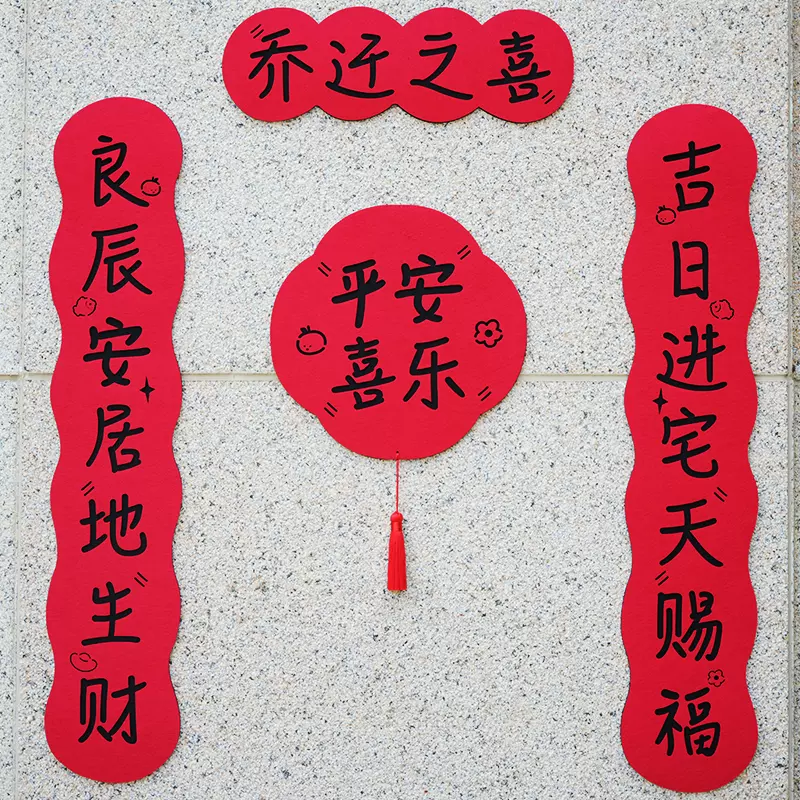 乔迁之喜
吉日进宅天赐福
良辰安居地生财
平安
喜乐